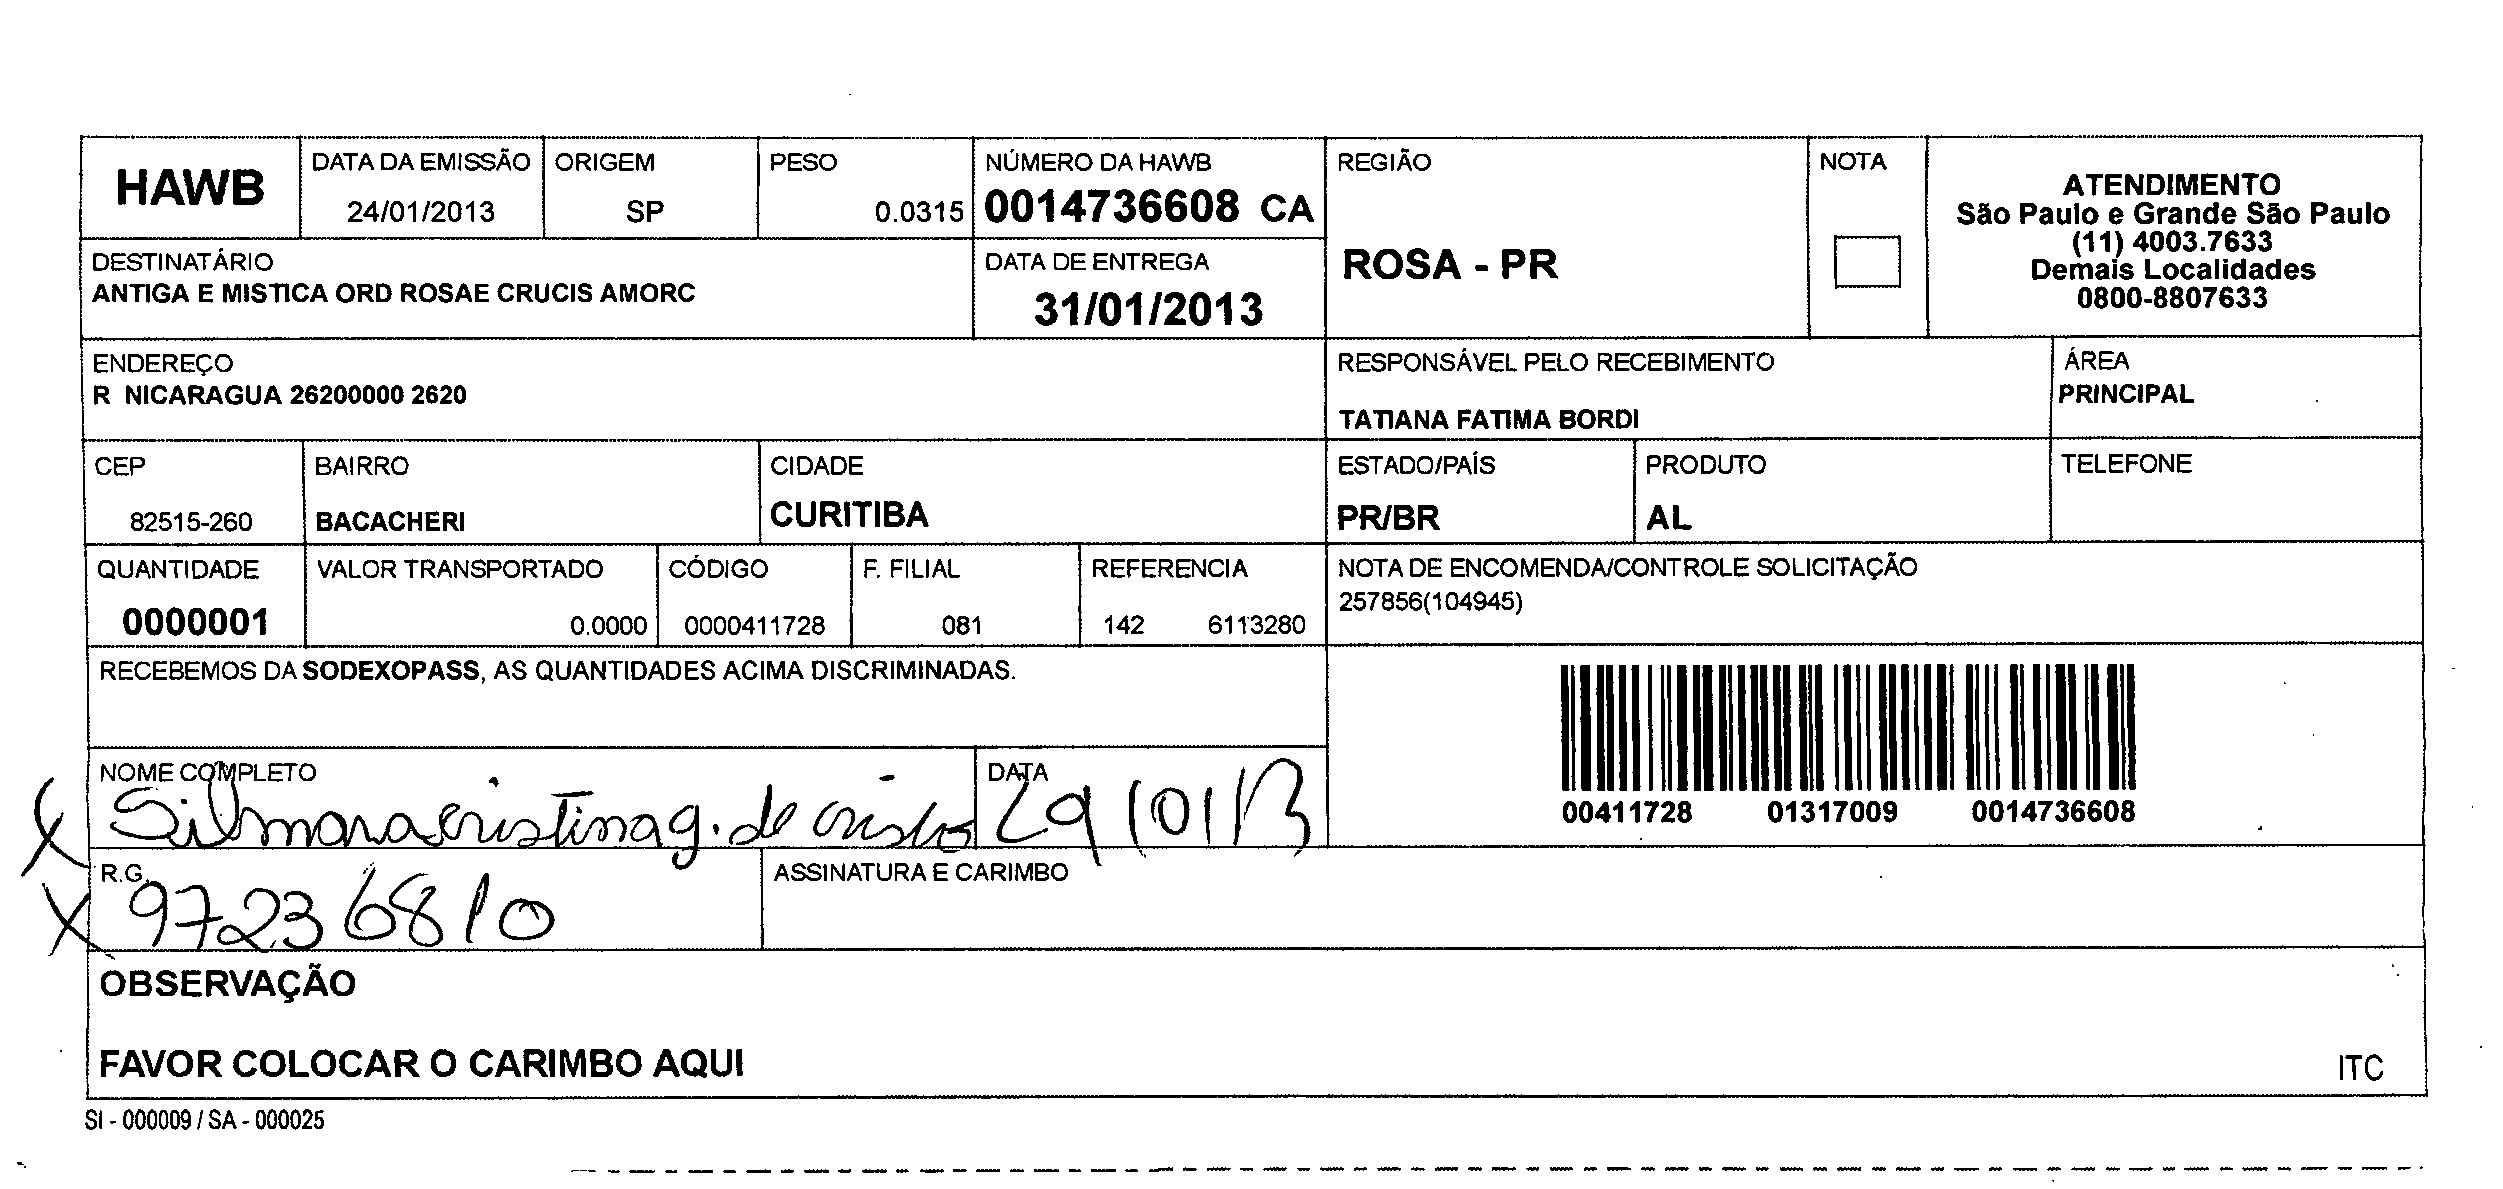 HAWB
DATA DA EMISSÃO
24/01/2013
ORIGEM
SP
PESO
0.0315
NÚMERO DA HAWB
0014736608 CA
REGIÃO
ROSA - PR
NOTA
ATENDIMENTO
São Paulo e Grande São Paulo
(11) 4003.7633
Demais Localidades
0800-8807633
DESTINATÁRIO
ANTIGA E MISTICA ORD ROSAE CRUCIS AMORC
DATA DE ENTREGA
31/01/2013
ENDEREÇO
R NICARAGUA 26200000 2620
RESPONSÁVEL PELO RECEBIMENTO
TATIANA FATIMA BORDI
ÁREA
PRINCIPAL
CEP
82515-260
BAIRRO
BACACHERI
CIDADE
CURITIBA
ESTADO/PAÍS
PR/BR
PRODUTO
AL
TELEFONE
QUANTIDADE
0000001
VALOR TRANSPORTADO
0.0000
CÓDIGO
0000411728
F. FILIAL
081
REFERENCIA
142 6113280
NOTA DE ENCOMENDA/CONTROLE SOLICITAÇÃO
257856(104945)
RECEBEMOS DA SODEXOPASS, AS QUANTIDADES ACIMA DISCRIMINADAS.
00411728 01317009 0014736608
NOME COMPLETO
Silmara cristina g. de cristo
DATA
29/01/13
R.G.
97236810
ASSINATURA E CARIMBO
OBSERVAÇÃO
FAVOR COLOCAR O CARIMBO AQUI
ITC
SI - 000009 / SA - 000025